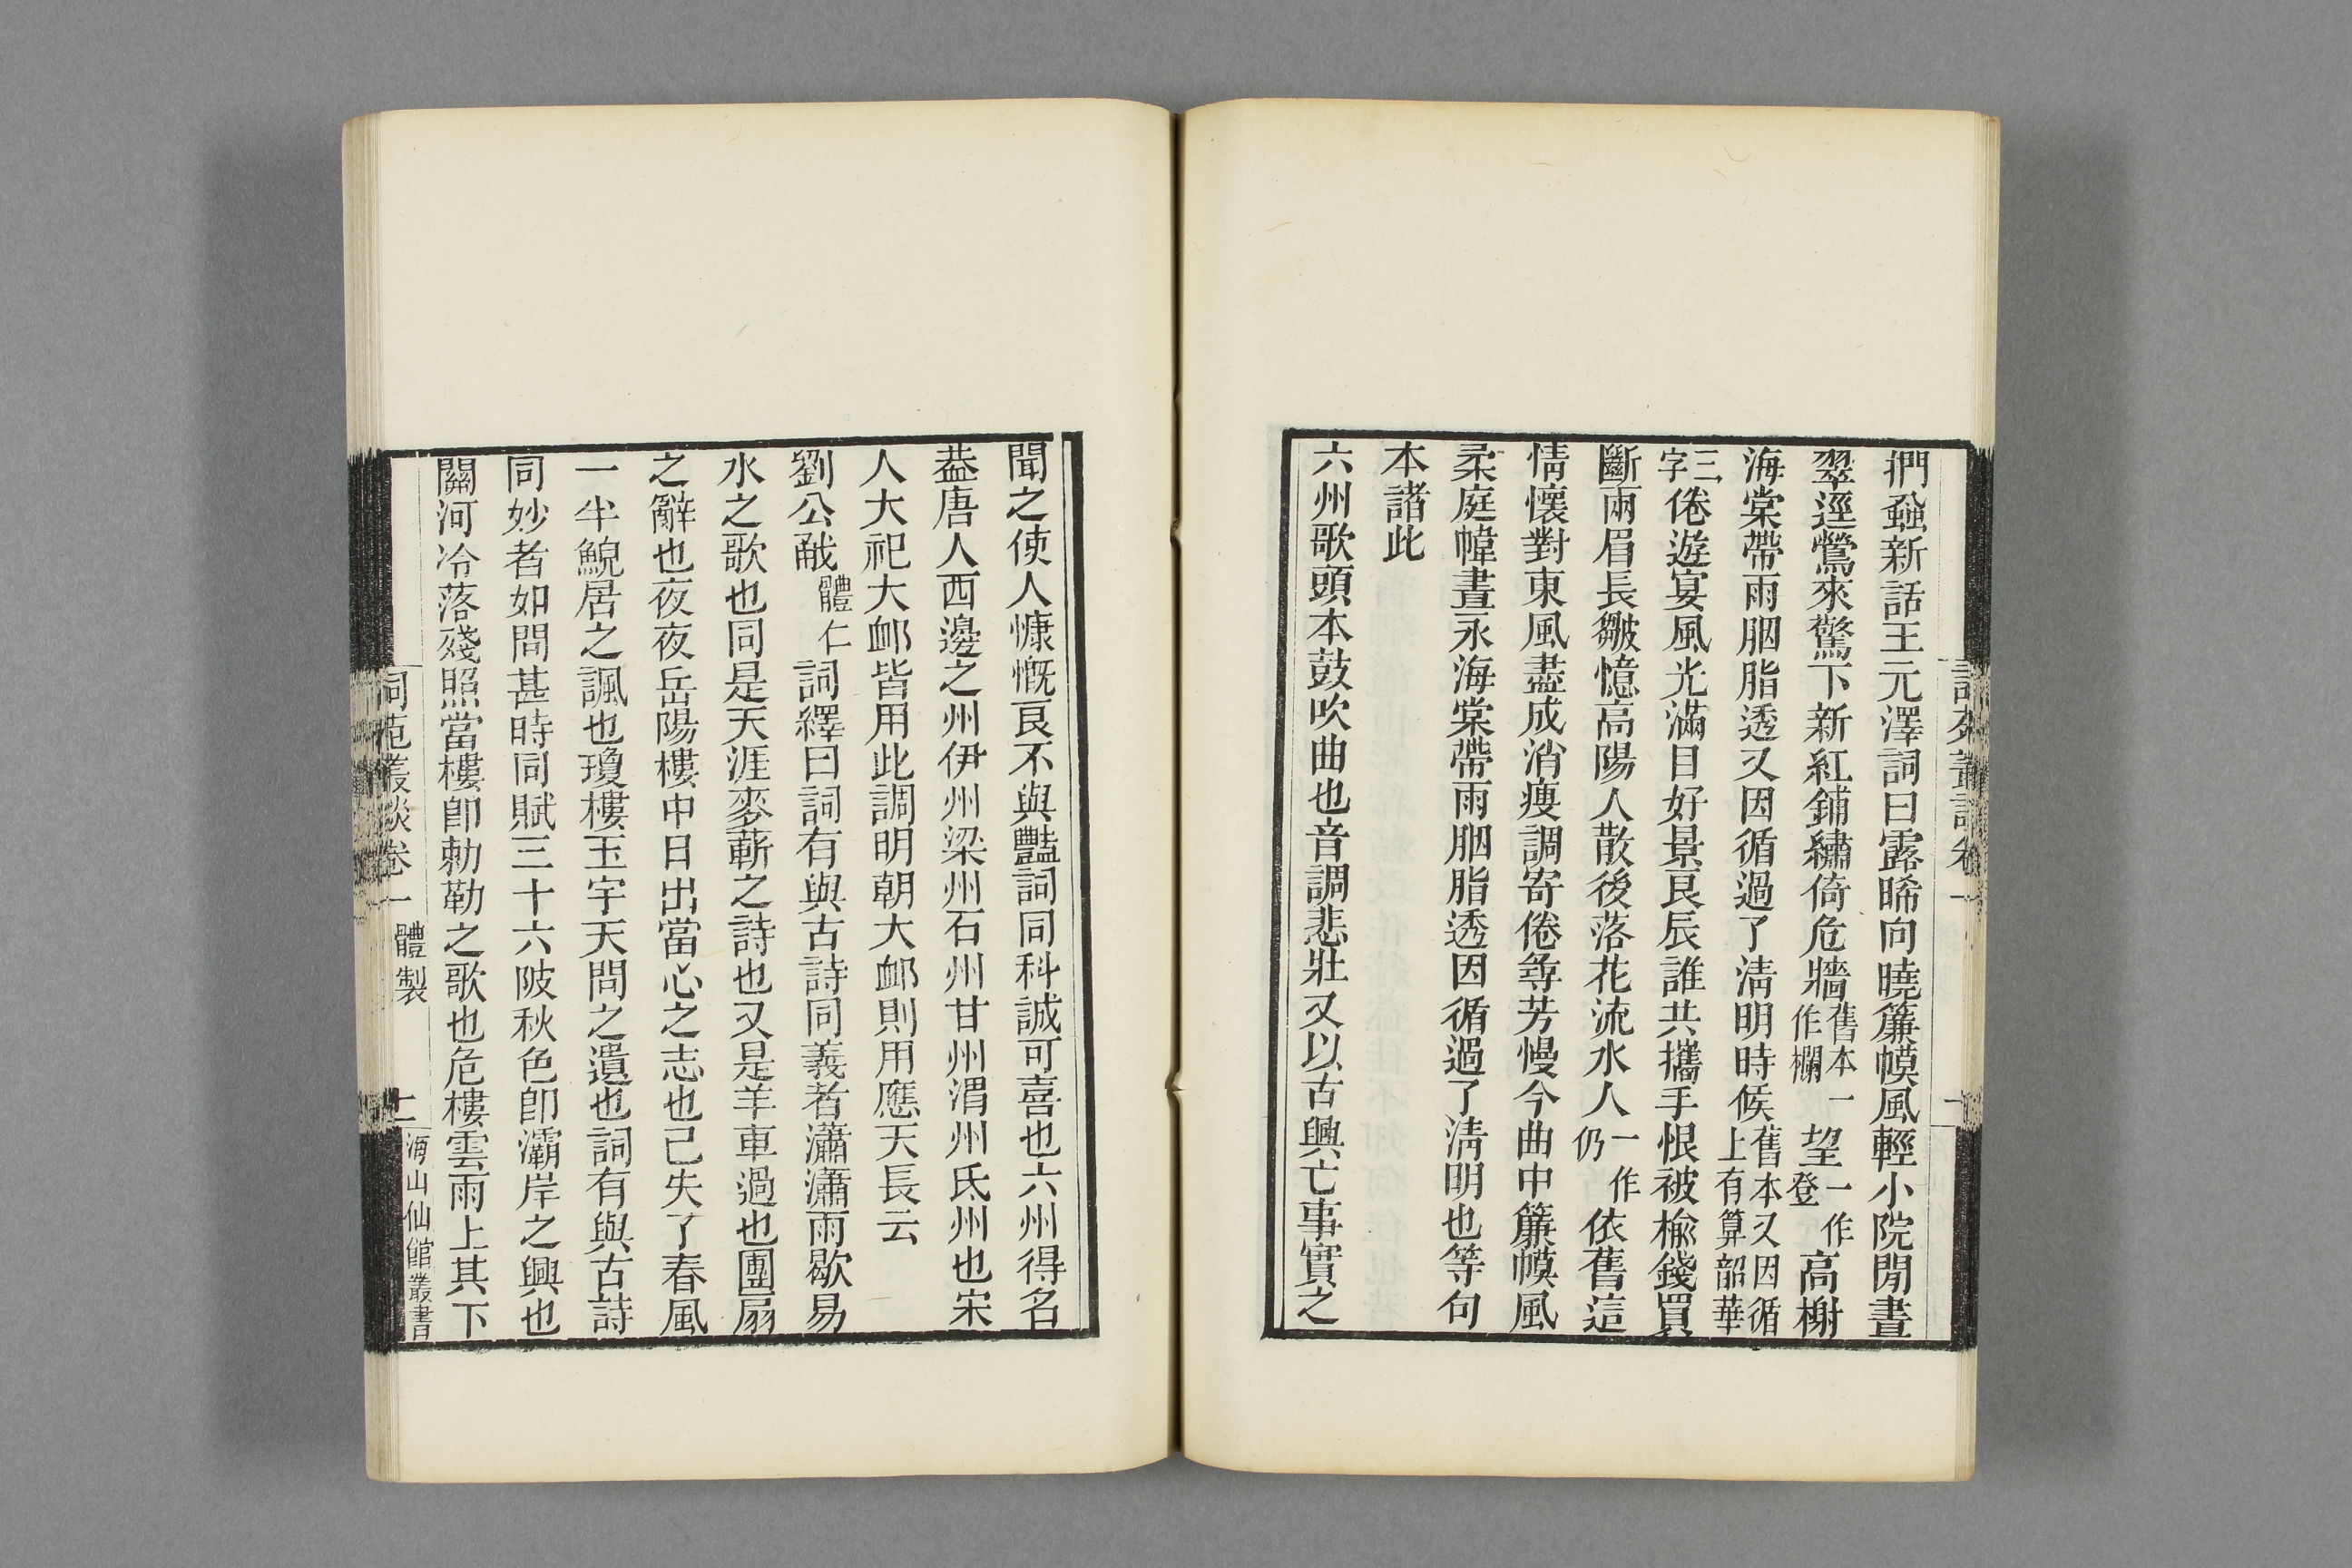 捫蝨新話王元澤詞曰露晞向曉簾幙風輕小院閒晝
翠逕鶯來驚下新紅鋪繡倚危牆舊本一作欄望一作登高榭
海棠帶雨胭脂透又因循過了淸明時候舊本又因循上有算韶華
三字倦遊宴風光滿目好景良辰誰共攜手恨被楡錢買
斷兩眉長皺憶高陽人散後落花流水人一作仍依舊這
情懷對東風盡成消瘦調寄倦尋芳慢今曲中簾幙風
柔庭幃晝永海棠帶雨胭脂透因循過了淸明也等句
本諸此
六州歌頭本鼓吹曲也音調悲壯又以古興亡事實之
聞之使人慷慨良不與豔詞同科誠可喜也六州得名
葢唐人西邊之州伊州梁州石州甘州渭州氐州也宋
人大祀大䘏皆用此調明朝大䘏則用應天長云
劉公㦸體仁詞繹曰詞有與古詩同義者瀟瀟雨歇易
水之歌也同是天涯麥蘄之詩也又是羊車過也團扇
之辭也夜夜岳陽樓中日出當心之志也已失了春風
一半鯢居之諷也瓊樓玉宇天問之遺也詞有與古詩
同妙者如問甚時同賦三十六陂秋色卽灞岸之興也
關河冷落殘照當樓卽勅勒之歌也危樓雲雨上其下
詞苑叢談卷一 體製 十一 海山仙館叢書